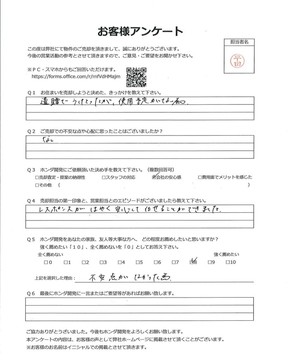 お客様アンケート
担当者名
この度は弊社にて物件のご売却を頂きまして、誠にありがとうございます。
今後の営業活動の参考とさせて頂きますので、ご意見・ご要望をお聞かせ下さい。
※PC・スマホからもご回答いただけます。
Q1 お住まいを売却しようと決めた、きっかけを教えて下さい。
Q2 ご売却での不安な点や心配に思ったことはございましたか?
なし
Q3 ホンダ開発にご依頼頂いた決め手を教えて下さい。(複数回答可)
□売却査定・提案の納得性 □スタッフの対応 □会社の安心感 □費用面でメリットを感じた
□その他( )
Q4 売却担当の第一印象と、エピソードがございましたら教えて下さい。
レスポンスが はやく 安心して 任せることができました。
Q5 ホンダ開発をあなたの家族、友人等大事な方へ、どの程度お薦めしたいと思いますか?
強く薦めたい「10」、全く薦めないを「0」としてお答え下さい。
全く薦めない 強く薦めたい
□0 □1 □2 □3 □4 □5 □6 □7 □8 □9 □10
上記を選択した理由: 不安点が なかった為
Q6 最後にホンダ開発に一言またはご要望等があればお願い致します。
ご協力ありがとうございました。今後もホンダ開発をよろしくお願い致します。
本アンケートの内容は、お客様の声として弊社ホームページに掲載させて頂くことがございます。
※お客様のお名前はイニシャルでの掲載とさせて頂きます。